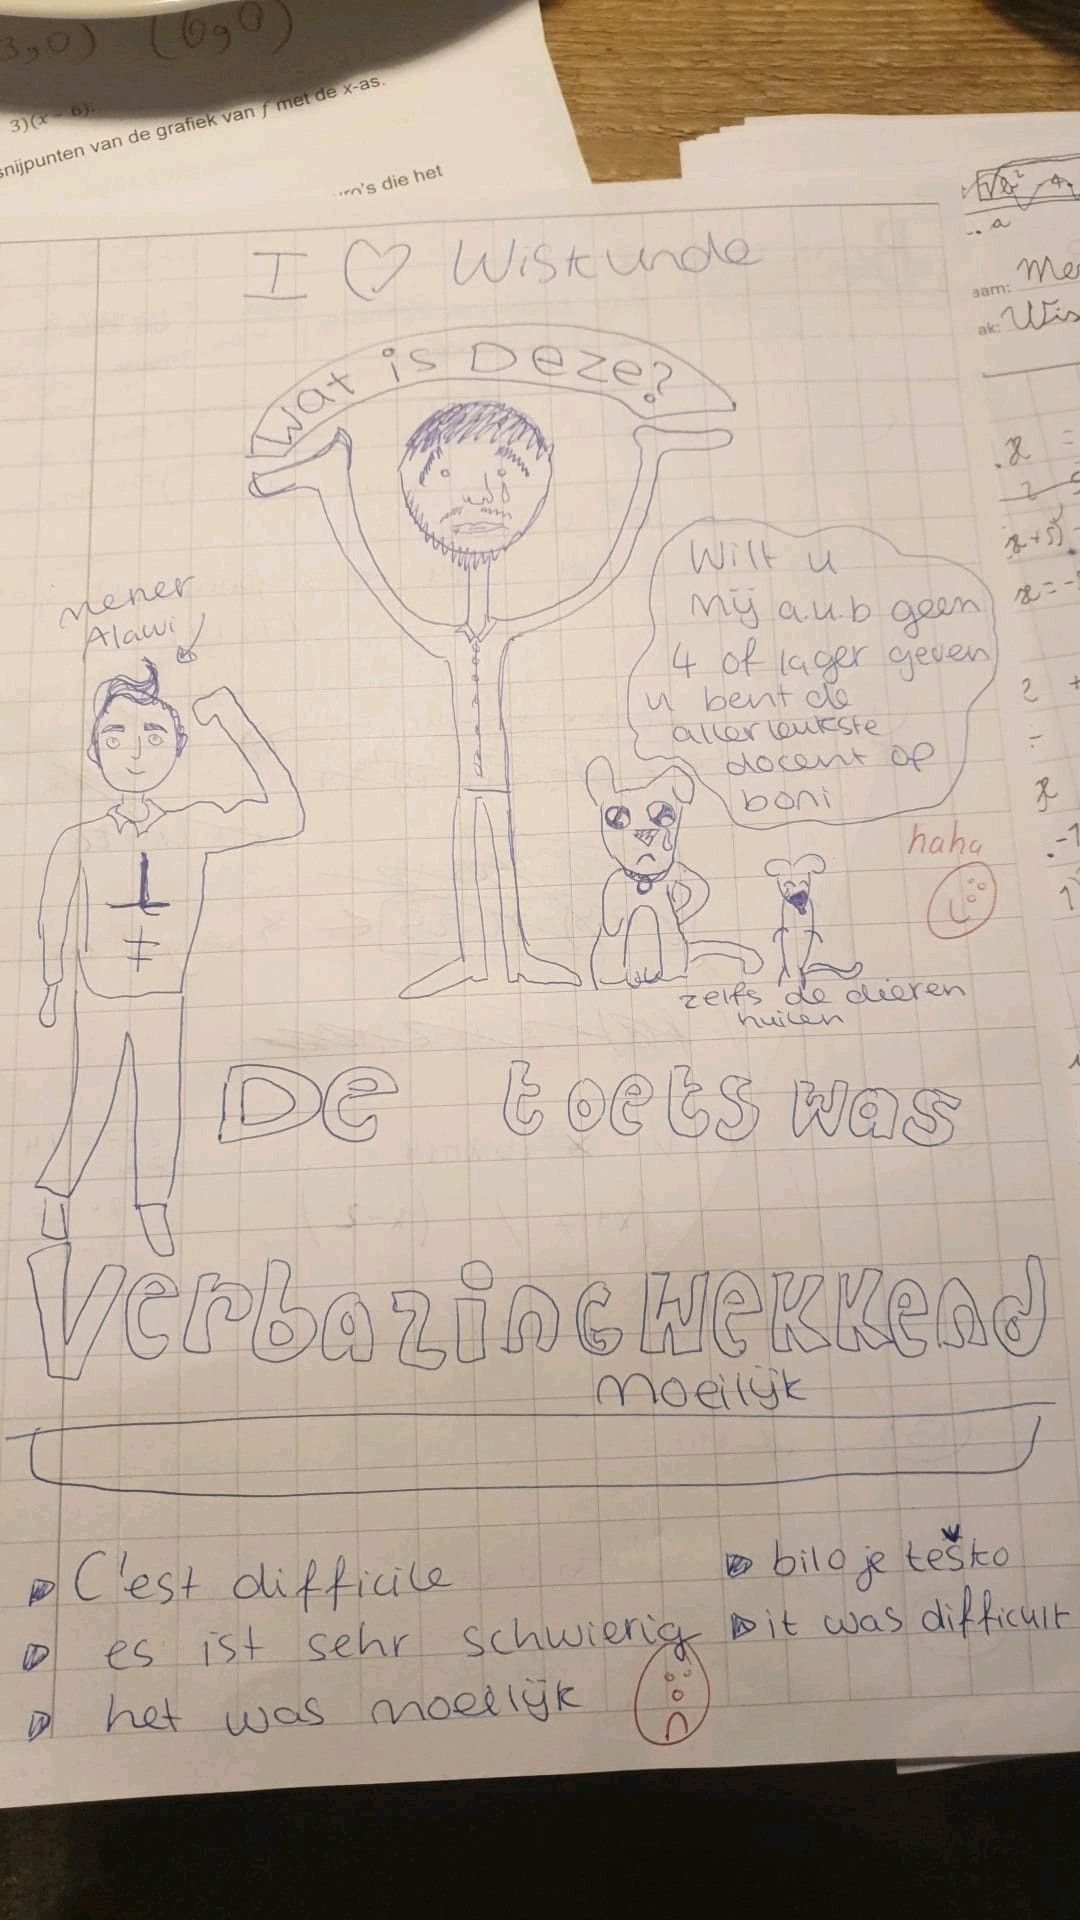 (6,0)
3)(x - 6).
snijpunten van de grafiek van f met de x-as.
die het
I ♡ Wiskunde
Wat is Deze?
Wilt u
mij a.u.b geen
4 of lager geven
u bent de
allerleukste
docent op
boni
mener
Alawi
haha
zelfs de dieren
huilen
De toets was
VerbazingWekkend
moeilijk
C'est difficile
es ist sehr schwierig
het was moeilijk
bilo je teško
it was difficult
aam:
ak: Wis